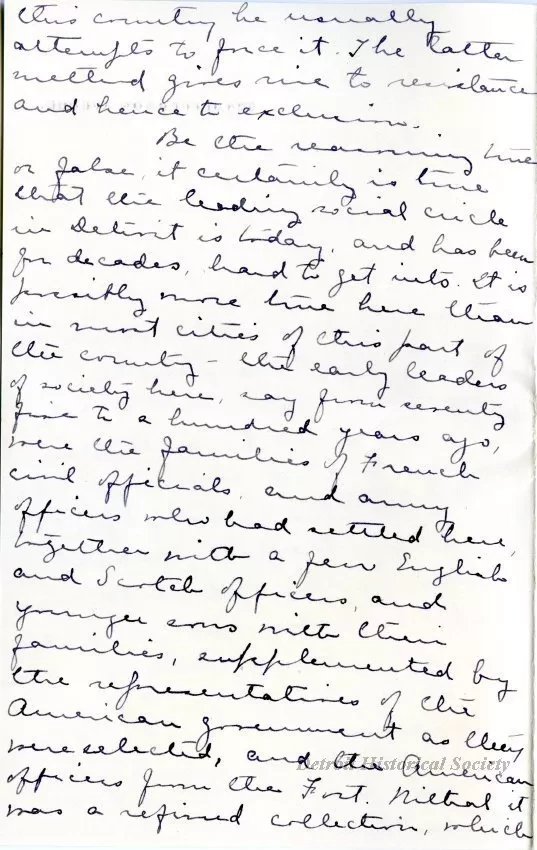 this country he usually
attempts to force it. The latter
method gives rise to resistance
and hence to exclusion.
Be the reasoning true
or false, it certainly is true
that the leading social circle
in Detroit is today, and has been
for decades, hard to get into. It is
possibly more true here than
in most cities of this part of
the country - the early leaders
of society here, say from seventy
five to a hundred years ago,
were the families of French
civil officials, and army
officers who had settled here,
together with a few English
and Scotch officers, and
younger sons with their
families, supplemented by
the representatives of the
American government as they
were selected, and the American
Detroit Historical Society
officers from the Fort. Withal it
was a refined collection, which